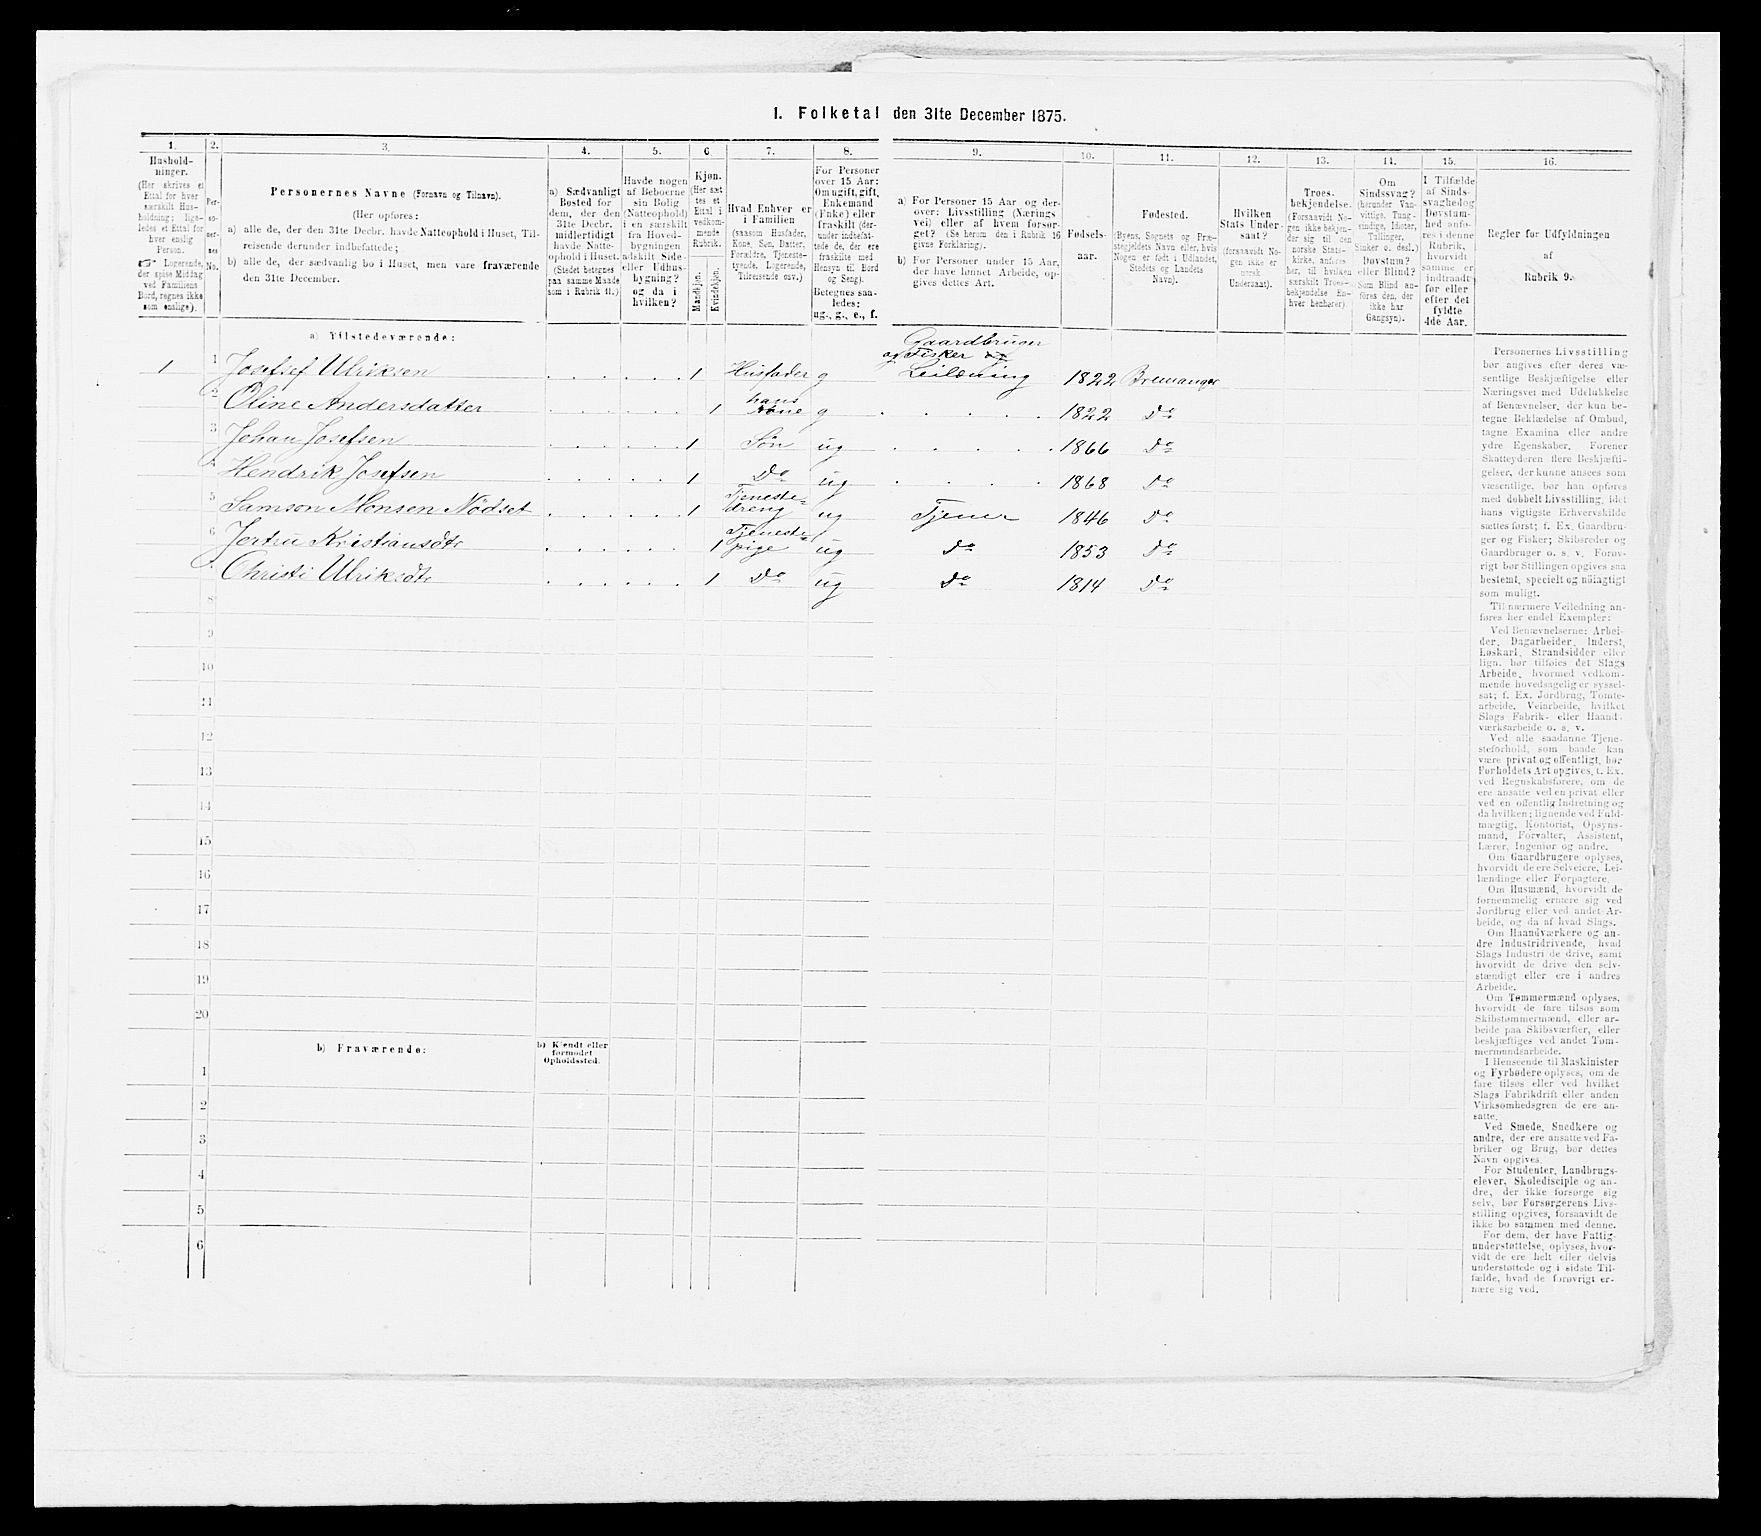 1. Folketal den 31te December 1875.
1.
2.
3.
4.
5.
6
7.
8.
9.
10.
11.
12.
13.
14.
15.
16.
Hushold-
ninger.
(Her skrives et
Ettal for hver
særskilt Hus-
holdning; lige-
ledes et Ettal for
hver enslig
Person.
☞ Logerende,
der spise Middag
ved Familiens
Bord, regnes ikke
som enslige).
Per-
so-
ner-
nes
No.
Personernes Navne (Fornavn og Tilnavn).
(Her opføres:
a) alle de, der den 31te Decbr. havde Natteophold i Huset, Til-
reisende derunder indbefattede;
b) alle de, der sædvanlig bo i Huset, men vare fraværende
den 31te December.
a) Sædvanligt
Bosted for
dem, der den
31te Decbr.
midlertidigt
havde Natte-
ophold i Huset.
(Stedet betegnes
paa samme Maade
som i Rubrik 11.)
Havde nogen
af Beboerne
sin Bolig
(Natteophold)
i en særskilt
fra Hoved-
bygningen
adskilt Side-
eller Udhus-
bygning?
og da i
hvilken?
Kjøn.
(Her sæt
tes et
Ettal i
vedkom-
mende
Rubrik.
Mandkjøn.
Kvindekjøn.
Hvad Enhver er
i Familien
(saasom Husfader,
Kone, Søn, Datter,
Forældre, Tjeneste-
tyende, Logerende,
Tilreisende osv.)
For Personer
over 15 Aar:
Om ugift, gift,
Enkemand
(Enke) eller
fraskilt (der-
under indbefat-
tede de, der ere
fraskilte med
Hensyn til Bord
og Seng).
Betegnes saa-
ledes:
ug., g., e., f.
a) For Personer 15 Aar og der-
over: Livsstilling (Nærings
vei) eller af hvem forsør-
get? (Se herom den i Rubrik 16
givne Forklaring).
b) For Personer under 15 Aar,
der have lønnet Arbeide, op-
gives dettes Art.
Fødsels-
aar.
Fødested.
(Byens, Sognets og Præ-
stegjeldets Navn eller, hvis
Nogen er født i Udlandet,
Stedets og Landets
Navn).
Hvilken
Stats Under-
saat?
(forsaavidt No-
gen ikke er
norsk
Undersaat).
Troes-
bekjendelse.
(Forsaavidt No-
gen ikke bekjen-
der sig til den
norske Stats-
kirke, anføres
her, til hvilken
særskilt Troes-
bekjendelse En-
hver henhører).
Om
Sindssvag?
(herunder Van-
vittige, Tung-
sindige, Idioter,
Tullinger,
Sinker o. desl.)
Døvstum?
eller Blind?
Som Blind an-
føres den, der
ikke har
Gangsyn).
I Tilfælde
af Sinds-
svaghed og
Døvstum-
hed anfø-
res i denne
Rubrik,
hvorvidt
samme er
indtraadt
før eller
efter det
fyldte
4de Aar.
Regler for Udfyldningen
af
Rubrik 9.
a) Tilstedeværende:
Gaardbruger
og Fisker
1 1 Josefsef Ulriksen 1 Husfader g Leilænding 1822 Bremanger
2 Oline Andersdatter 1 hans Kone g 1822 Do
3 Johan Josefsen 1 Søn ug 1866 Do
4 Hendrik Josefsen 1 Do ug 1868 Do
5 Samson Monsen Nødset 1 Tjeneste-dreng ug Tjener 1846 Do
6 Jertru Kristiansdtr 1 Tjeneste-pige ug Do 1853 Do
Christi Ulriksdtr 1 Do ug Do 1814 Do
8
9
10
11
12
13
14
15
16
17
18
19
20
b) Fraværende:
b) Kjendt eller
formodet
Opholdssted.
1
2
3
4
5
6
Personernes Livsstilling
bør angives efter deres væ-
sentlige Beskjæftigelse eller
Næringsvei med Udelukkelse
af Benævnelser, der kun be-
tegne Beklædelse af Ombud,
tagne Examina eller andre
ydre Egenskaber. Forener
Skatteyderen flere Beskjæfti-
gelser, der kunne ansees som
væsentlige, bør han opføres
med dobbelt Livsstilling, idet
hans vigtigste Erhvervskilde
sættes først; f. Ex. Gaardbru-
ger og Fisker; Skibsreder og
Gaardbruger o. s. v. Forøv-
rigt bør Stillingen opgives saa
bestemt, specielt og nøiagtigt
som muligt.
Til nærmere Veiledning an-
føres her endel Exempler:
Ved Benævnelserne: Arbei-
der, Dagarbeider, Inderst,
Løskarl, Strandsidder eller
lign. bør tilføies det Slags
Arbeide, hvormed vedkom-
mende hovedsagelig er syssel-
sat; f. Ex. Jordbrug, Tomte-
arbeide, Veiarbeide, hvilket
Slags Fabrik- eller Haand-
værksarbeide o. s. v.
Ved alle saadanne Tjene-
steforhold, som baade kan
være privat og offentligt, bør
Forholdets Art opgives, f. Ex.
ved Regnskabsførere, om de
ere ansatte ved en privat eller
ved en offentlig Indretning og
da hvilken; lignende ved Fuld-
mægtig, Kontorist, Opsyns-
mand, Forvalter, Assistent,
Lærer, Ingeniør og andre.
Om Gaardbrugere oplyses,
hvorvidt de ere Selveiere, Lei-
lændinge eller Forpagtere.
Om Husmænd, hvorvidt de
fornemmelig ernære sig ved
Jordbrug eller ved andet Ar-
beide, og da af hvad Slags.
Om Haandværkere og an-
dre Industridrivende, hvad
Slags Industri de drive, samt
hvorvidt de drive den selv-
stændigt eller ere i andres
Arbeide.
Om Tømmermænd oplyses,
hvorvidt de fare tilsøs som
Skibstømmermænd, eller ar-
beide paa Skibsværfter, eller
beskjæftiges ved andet Tøm-
mermandsarbeide.
I Henseende til Maskinister
og Fyrbødere oplyses, om de
fare tilsøs eller ved hvilket
Slags Fabrikdrift eller anden
Virksomhedsgren de ere an-
satte.
Ved Smede, Snedkere og
andre, der ere ansatte ved Fa-
briker og Brug, bør dettes
Navn opgives.
For Studenter, Landbrugs-
elever, Skoledisciple og an-
dre, der ikke forsørge sig
selv, bør Forsørgerens Livs-
stilling opgives, forsaavidt de
ikke bo sammen med denne.
For dem, der have Fattig-
understøttelse, oplyses, hvor-
vidt de ere helt eller delvis
understøttede og i sidste Til-
fælde, hvad de forøvrigt er-
nære sig ved.